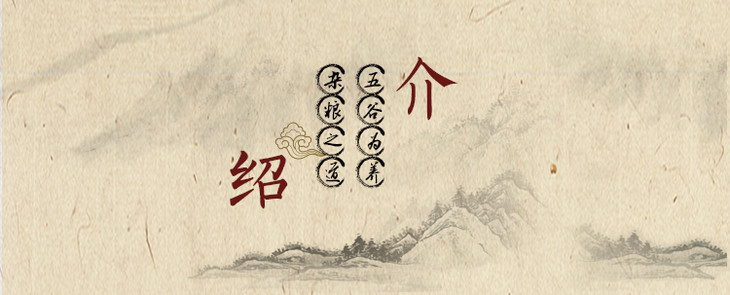 介
五谷为养
杂粮之道
绍